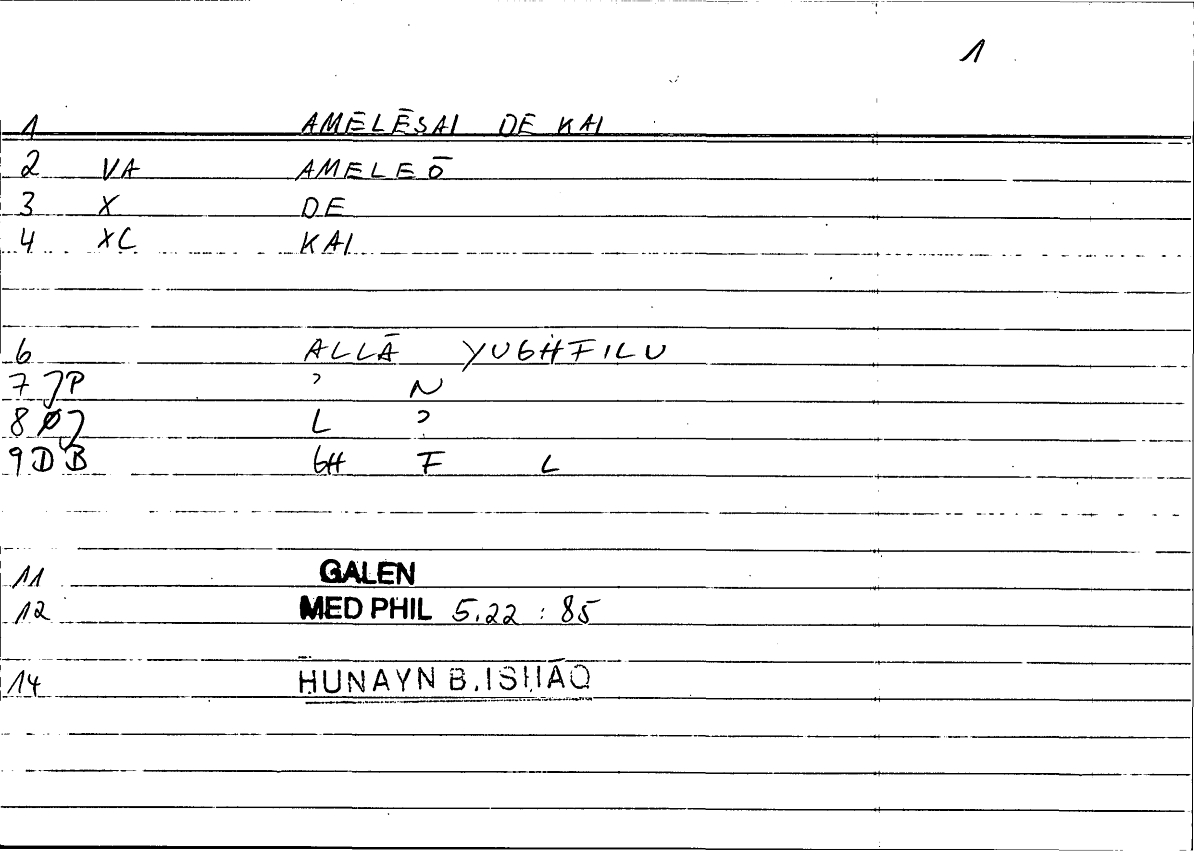 1
1 AMELĒSAI DE KAI
2 VA AMELEŌ
3 X DE
4 XC KAI
6 ALLĀ YUGHFILU
7 JP ʾ N
8 ØJ L ʾ
9 D B GH F L
11 GALEN
12 MED PHIL 5.22 : 85
14 ḤUNAYN B. ISḤĀQ